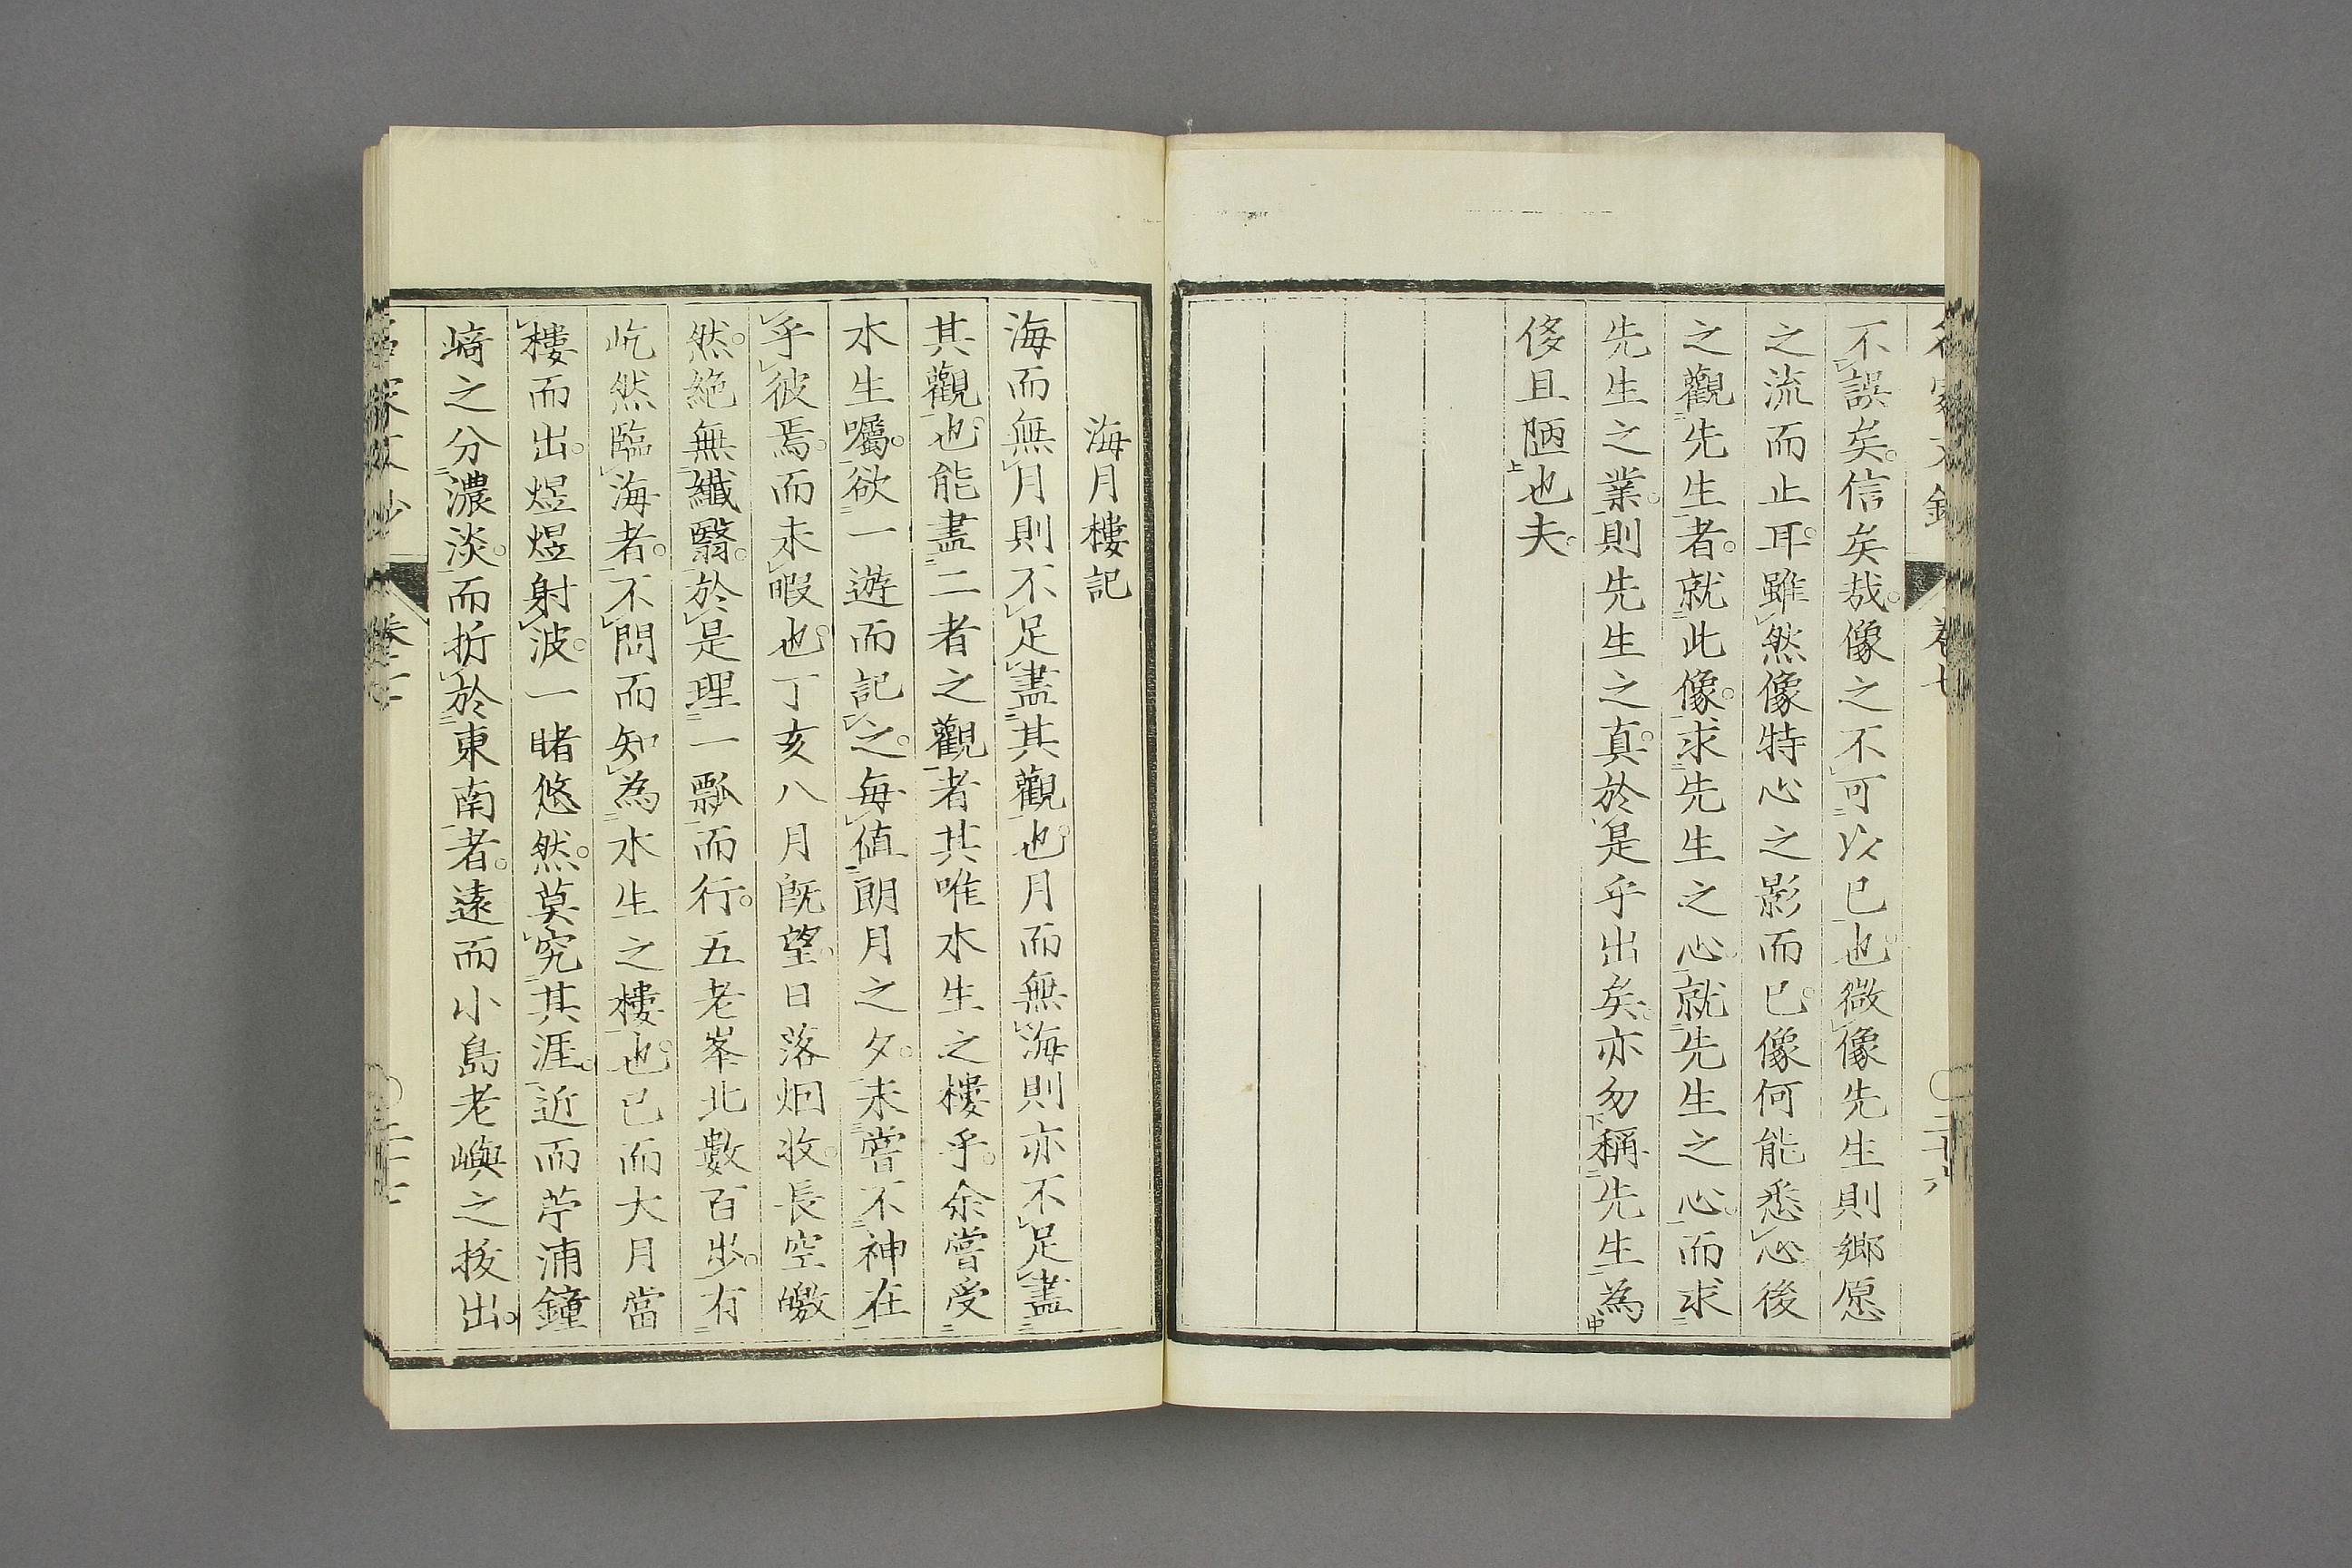 不誤矣信矣哉像之不可以已也微像先生則鄉愿
之流而止耳雖然像特心之影而已像何能悉心後
之觀先生者就此像求先生之心就先生之心而求
先生之業則先生之真於是乎出矣亦勿稱先生為
侈且陋也夫
海月樓記
海而無月則不足盡其觀也月而無海則亦不足盡
其觀也能盡二者之觀者其唯水生之樓乎余嘗受
水生囑欲一遊而記之每值朗月之夕未嘗不神在
乎彼焉而未暇也丁亥八月既望日落烟收長空皦
然絶無纖翳於是理一瓢而行五老峯北數百步有
屹然臨海者不問而知為水生之樓也已而大月當
樓而出煜煜射波一睹悠然莫究其涯近而苧浦鐘
﨑之分濃淡而折於東南者遠而小島老嶼之拔出